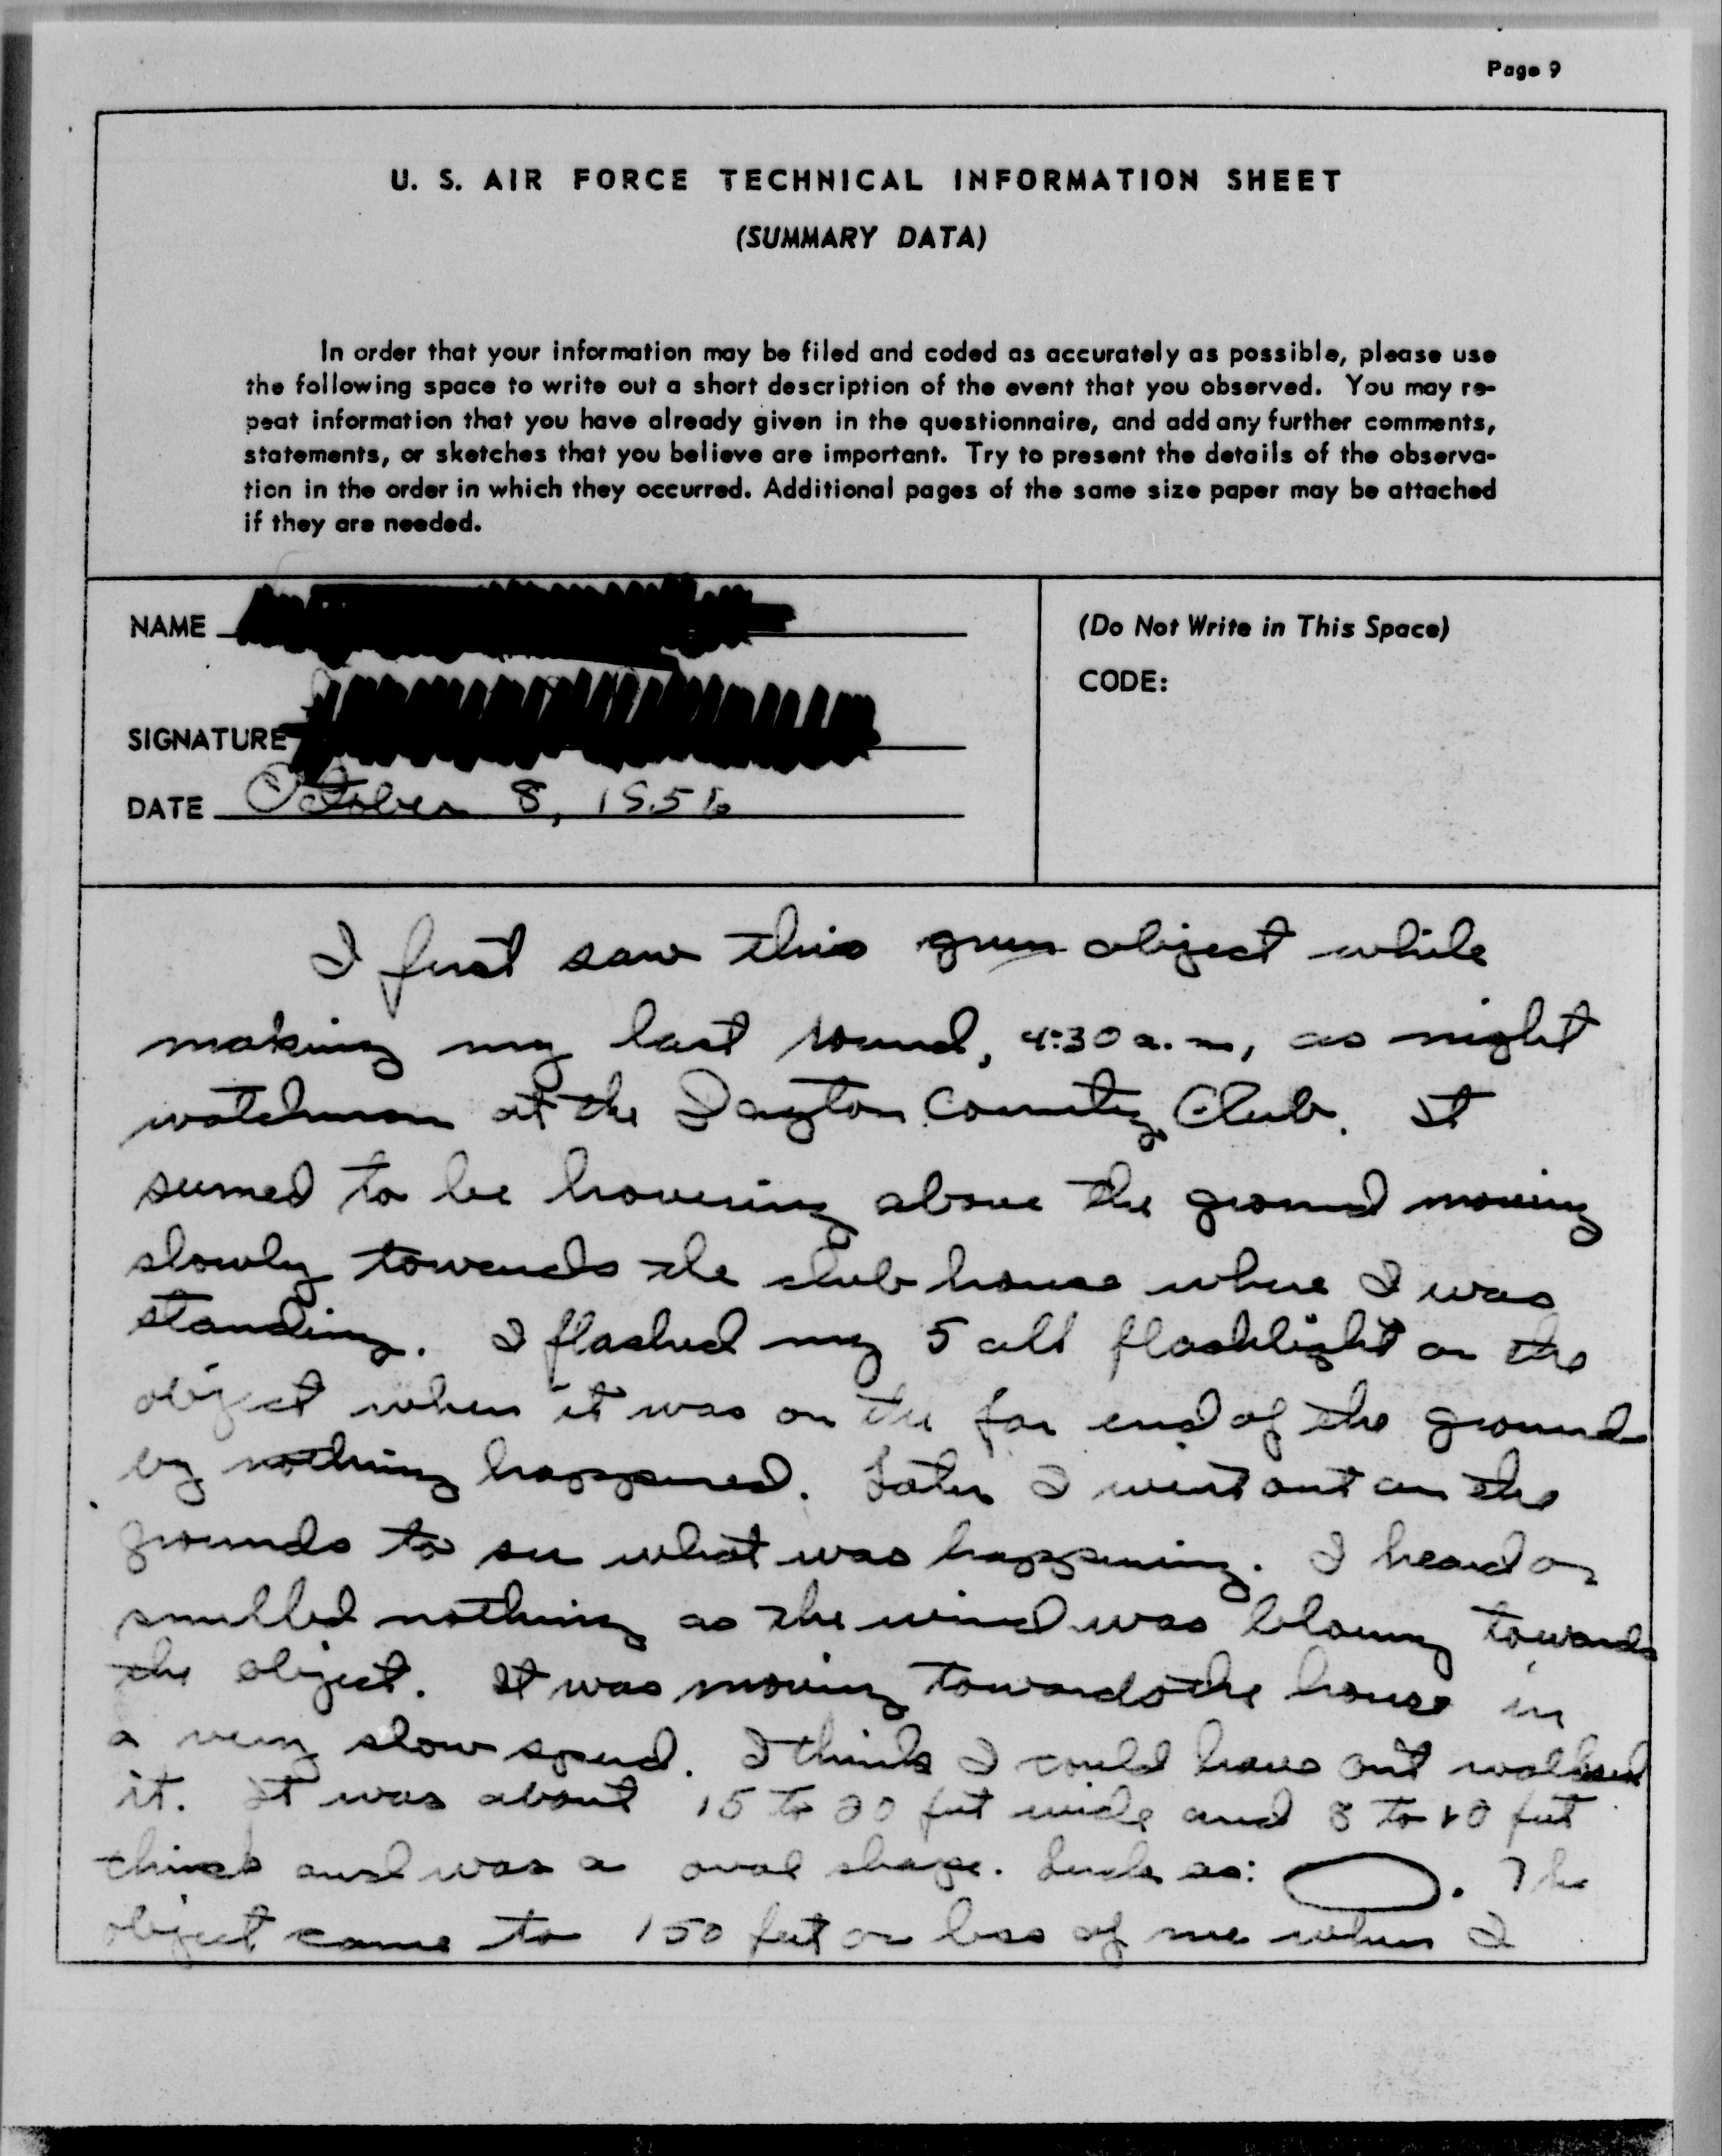 Page 9
U. S. AIR FORCE TECHNICAL INFORMATION SHEET
(SUMMARY DATA)
In order that your information may be filed and coded as accurately as possible, please use
the following space to write out a short description of the event that you observed. You may re-
peat information that you have already given in the questionnaire, and add any further comments,
statements, or sketches that you believe are important. Try to present the details of the observa-
tion in the order in which they occurred. Additional pages of the same size paper may be attached
if they are needed.
NAME
(Do Not Write in This Space)
CODE:
SIGNATURE
DATE October 8, 1956
I first saw this green object while
making my last round, 4:30 a.m, as night
watchman at the Dayton Country Club. It
seemed to be hovering above the ground moving
slowly towards the club house where I was
standing. I flashed my 5 cell flashlight on the
object when it was on the far end of the grounds
by nothing happened. Later I went out on the
grounds to see what was happening. I heard or
smelled nothing as the wind was blowing towards
the object. It was moving towards the house in
a very slow speed. I think I could have out walked
it. It was about 15 to 20 feet wide and 8 to 10 feet
thick and was a oval shape. Such as: . The
object came to 150 feet or less of me when I